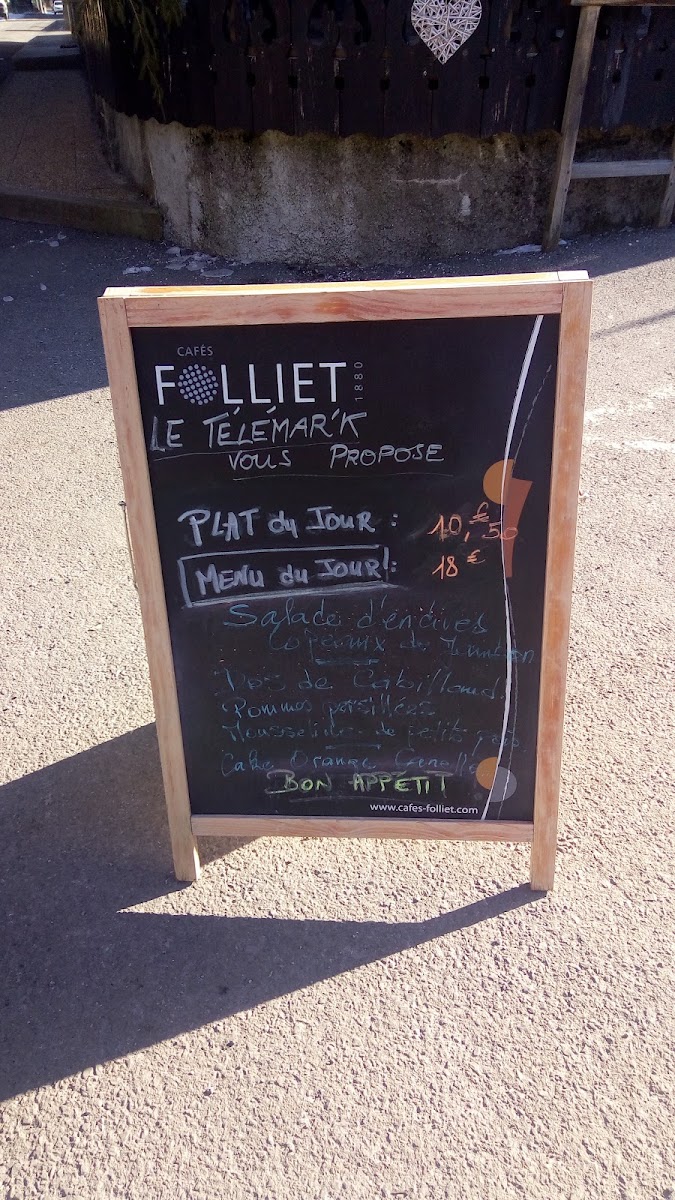 CAFÉS
FOLLIET 1880
LE TÉLÉMAR'K
VOUS PROPOSE
PLAT du JOUR : 10,€50
MENU du JOUR! : 18€
Salade d'endives
Copeaux de Jambon
Dos de Cabillaud
Pommes persillées
Mousseline de petits pois
Cake Orange
BON APPÉTIT
www.cafes-folliet.com